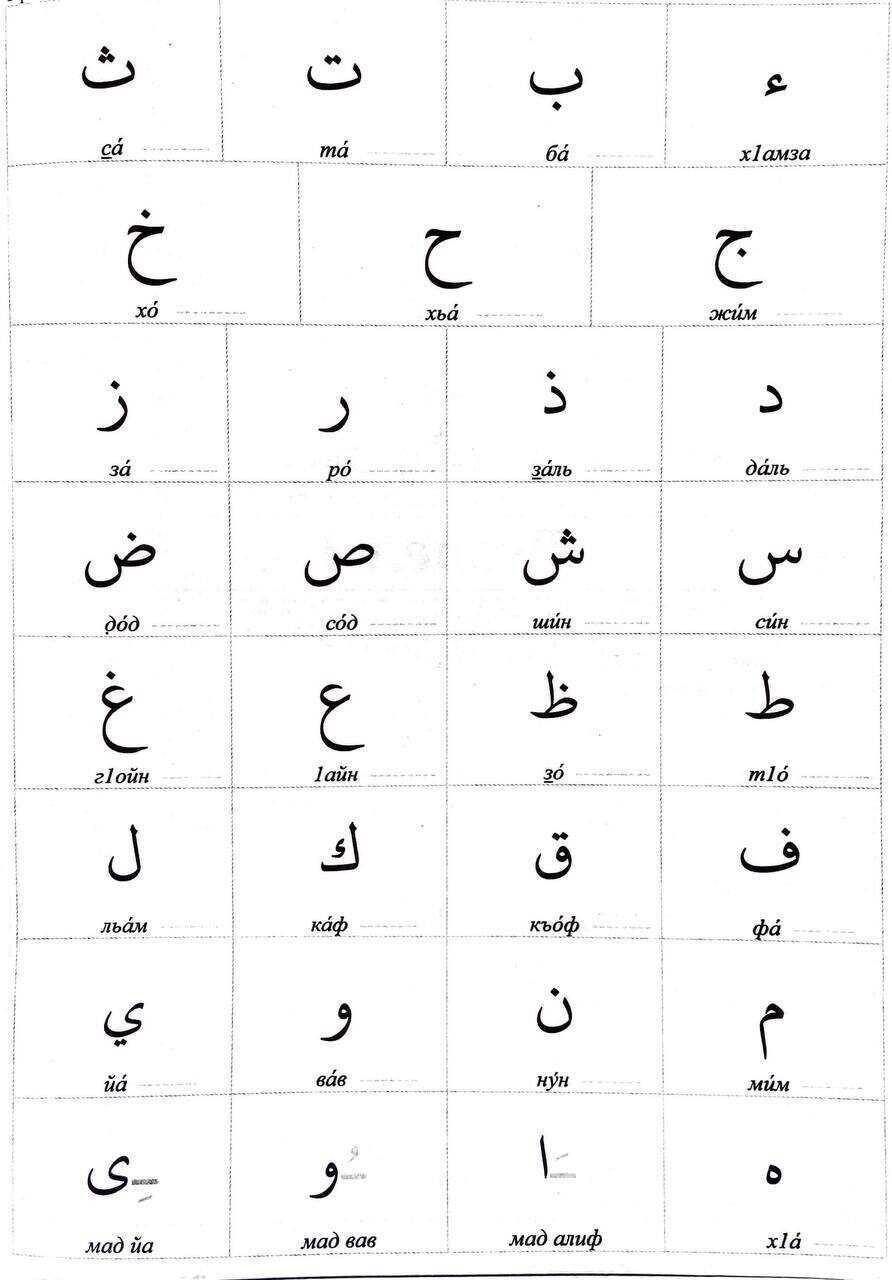 ء ب ت ث
са́ та́ ба́ х1амза
ج ح خ
хо́ хьа́ жи́м
د ذ ر ز
за́ ро́ за́ль да́ль
س ش ص ض
до́д со́д ши́н си́н
ط ظ ع غ
г1ойн 1айн зо́ т1о́
ف ق ك ل
льа́м ка́ф къо́ф фа́
م ن و ي
йа́ ва́в ну́н ми́м
ه ـَا ـُو ـِى
мад йа мад вав мад алиф х1а́